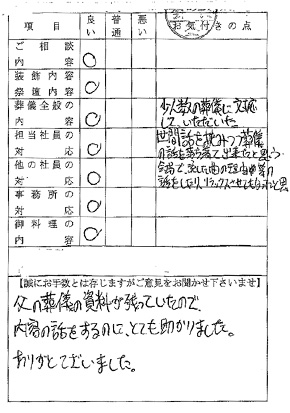 項目 良い 普通 悪い お気付きの点
ご相談の内容 ○
装飾内容
祭壇内容 ○
葬儀全般の内容 ○ 少人数の葬儀に対応して、いただいた
担当社員の対応 ○ 世間話を挟みつつ葬儀の話を
他の社員の対応 ○
事務所の対応 ○
御料理の内容 ○
【誠にお手数とは存じますがご意見をお聞かせ下さいませ】
父の葬儀の資料が残っていたので、
内容の話をするのに、とても助かりました。
ありがとうございました。